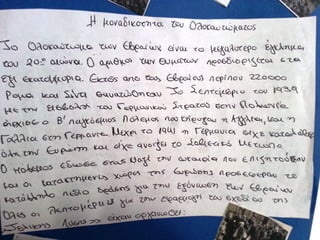 Η μοναδικότητα του Ολοκαυτώματος
Το Ολοκαύτωμα των Εβραίων είναι το μεγαλύτερο έγκλημα
του 20ου αιώνα. Ο αριθμός των θυμάτων προσδιορίζεται στα
έξι εκατομμύρια. Εκτός από τους Εβραίους περίπου 220000
Ρομά και Σίντι θανατώθηκαν. Το Σεπτέμβριο του 1939
με την εισβολή του Γερμανικού Στρατού στην Πολωνία
άρχισε ο Β' παγκόσμιος Πόλεμος που κήρυξαν η Αγγλία, και η
Γαλλία στη Γερμανία. Μέχρι το 1941 η Γερμανία είχε καταλάβει
όλη την Ευρώπη και είχε ανοίξει το Σοβιετικό Μέτωπο.
Ο πόλεμος έδωσε στους Ναζί την ευκαιρία που επιζητούσαν
και οι κατακτημένες χώρες της Ευρώπης προσέφεραν το
κατάλληλο πεδίο δράσης για την εξόντωση των Εβραίων
Όλες οι λεπτομέρειες για την εφαρμογή του σχεδίου της
«Τελικής Λύσης» είχαν οργανωθεί